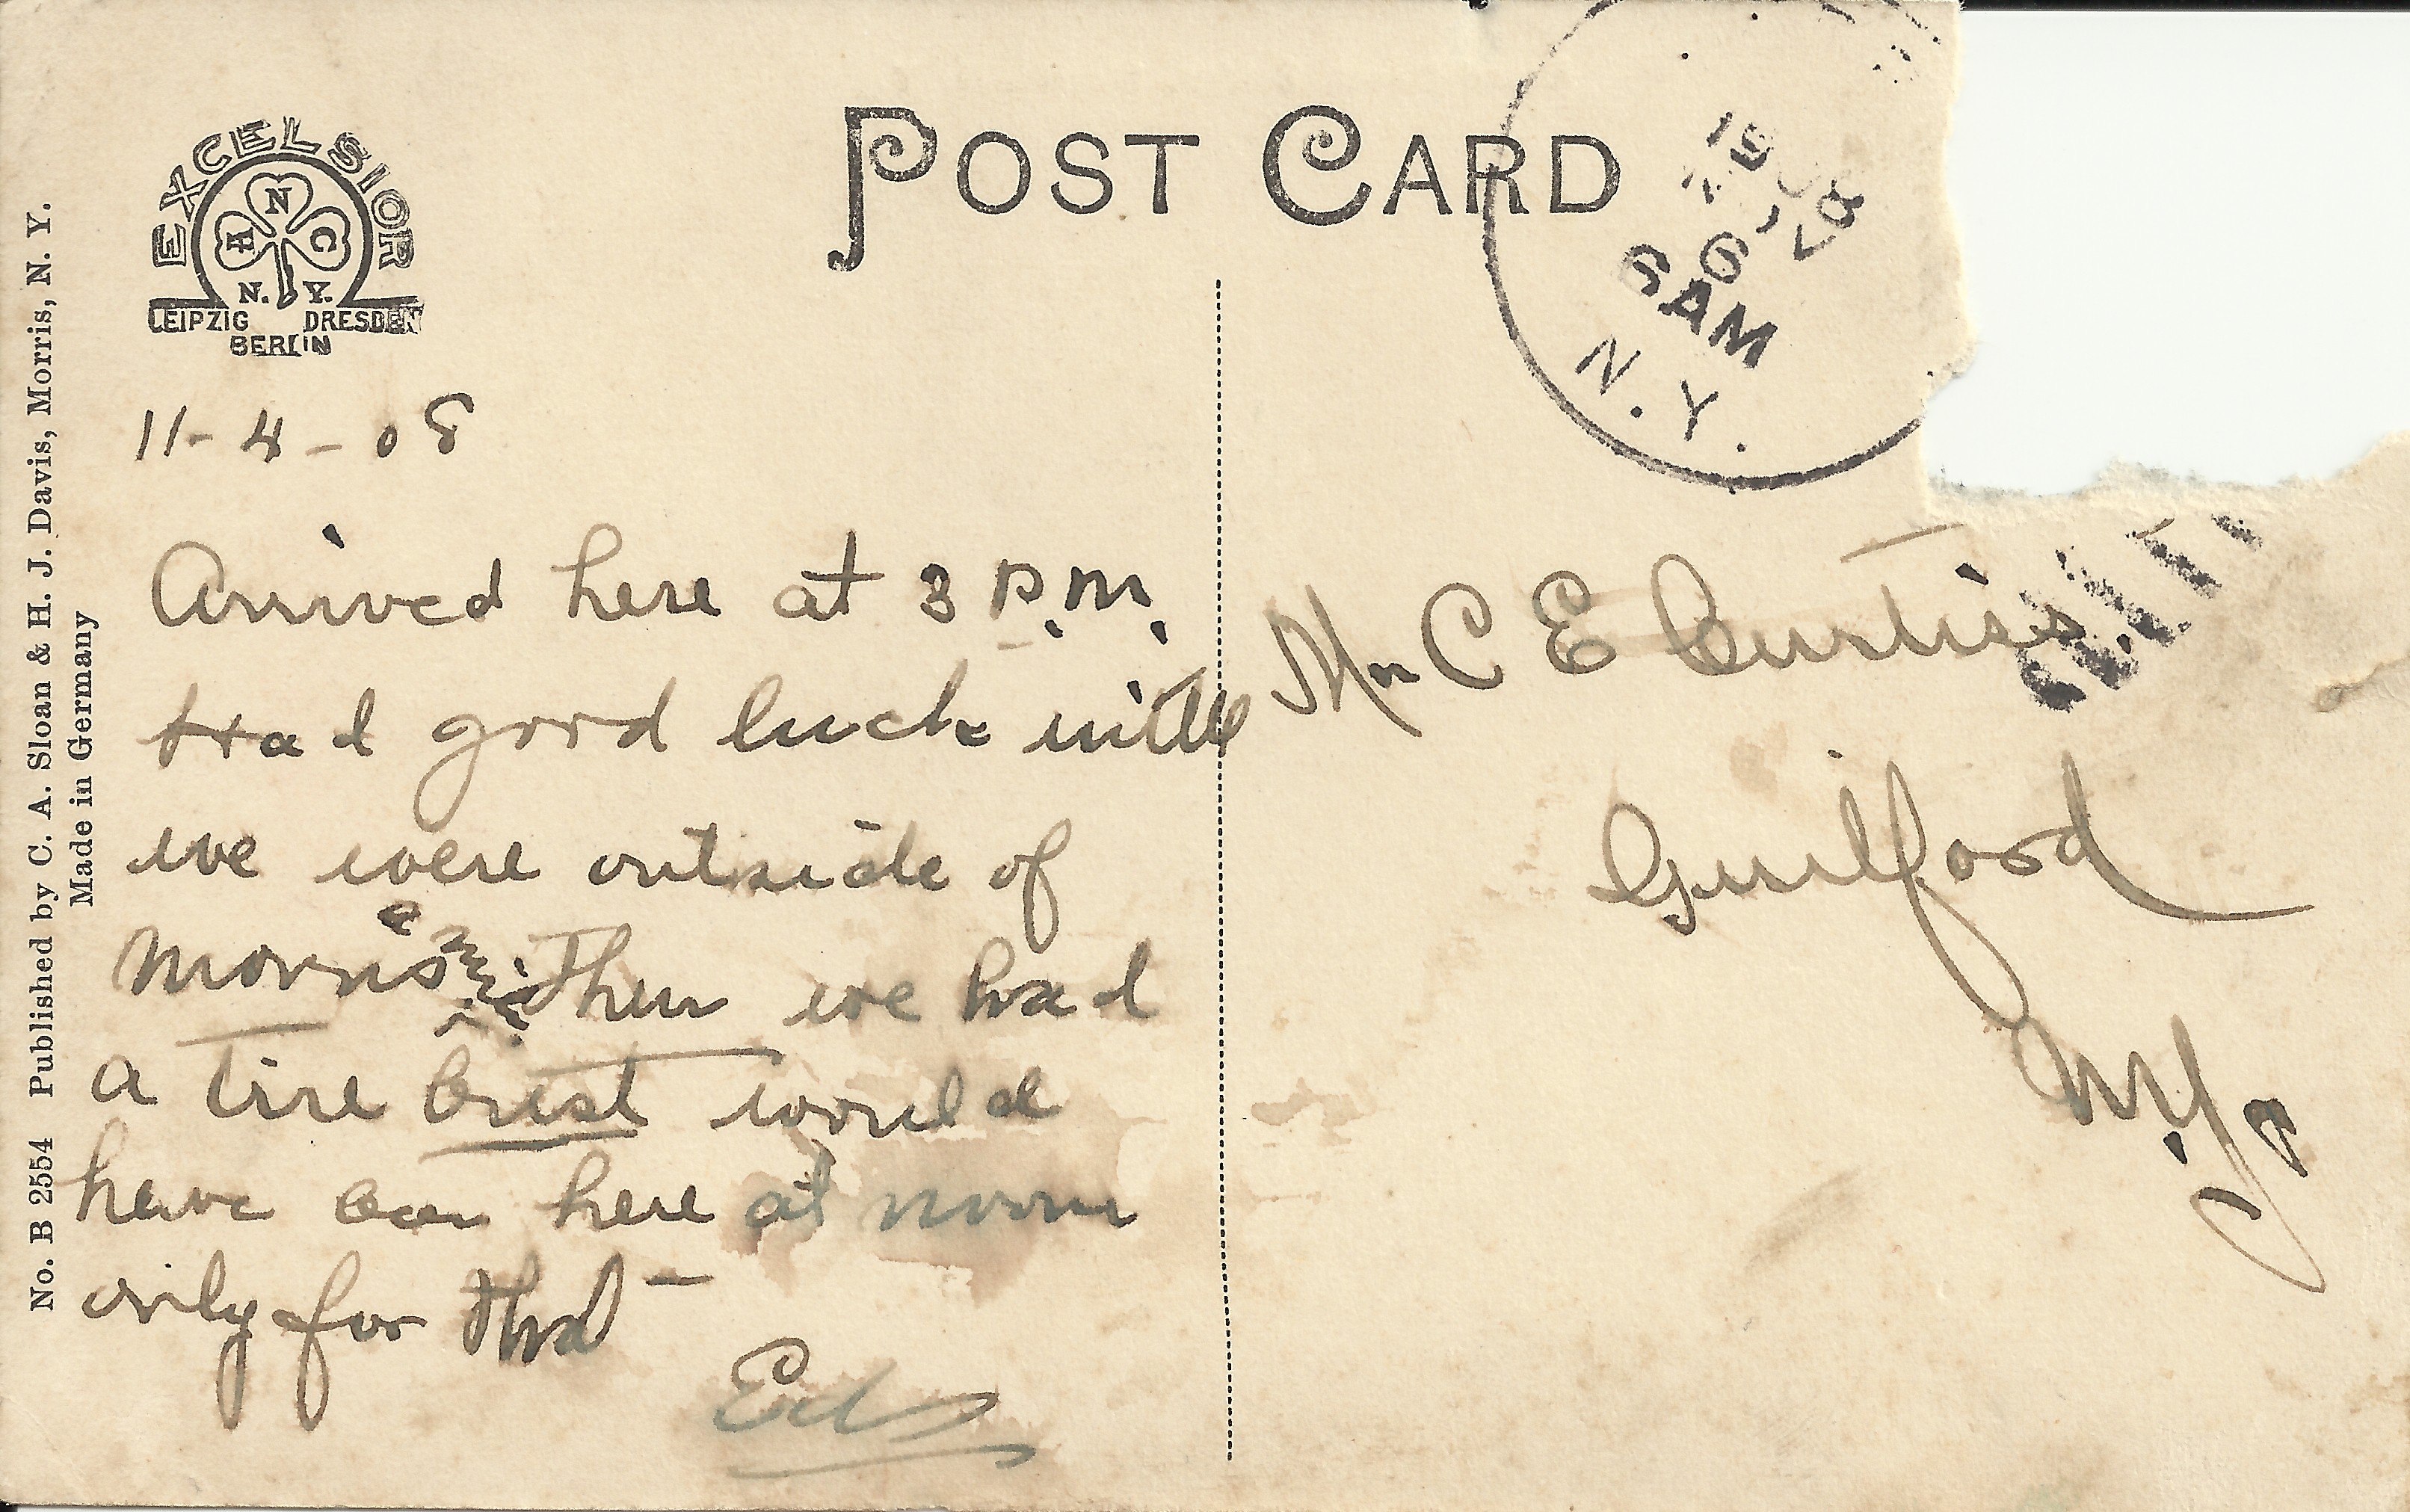 POST CARD
EXCELSIOR
A N C
N. Y.
LEIPZIG DRESDEN
BERLIN
No. B 2554 Published by C. A. Sloan & H. J. Davis, Morris, N. Y.
Made in Germany
1908
6
6 AM
N. Y.
11-4-08
Arrived here at 3 P.M.
Had good luck till
we were outside of
Morris then we had
a tire burst would
have been here at noon
only for that
Ed
Mr C E Curtiss
Guilford
N.Y.